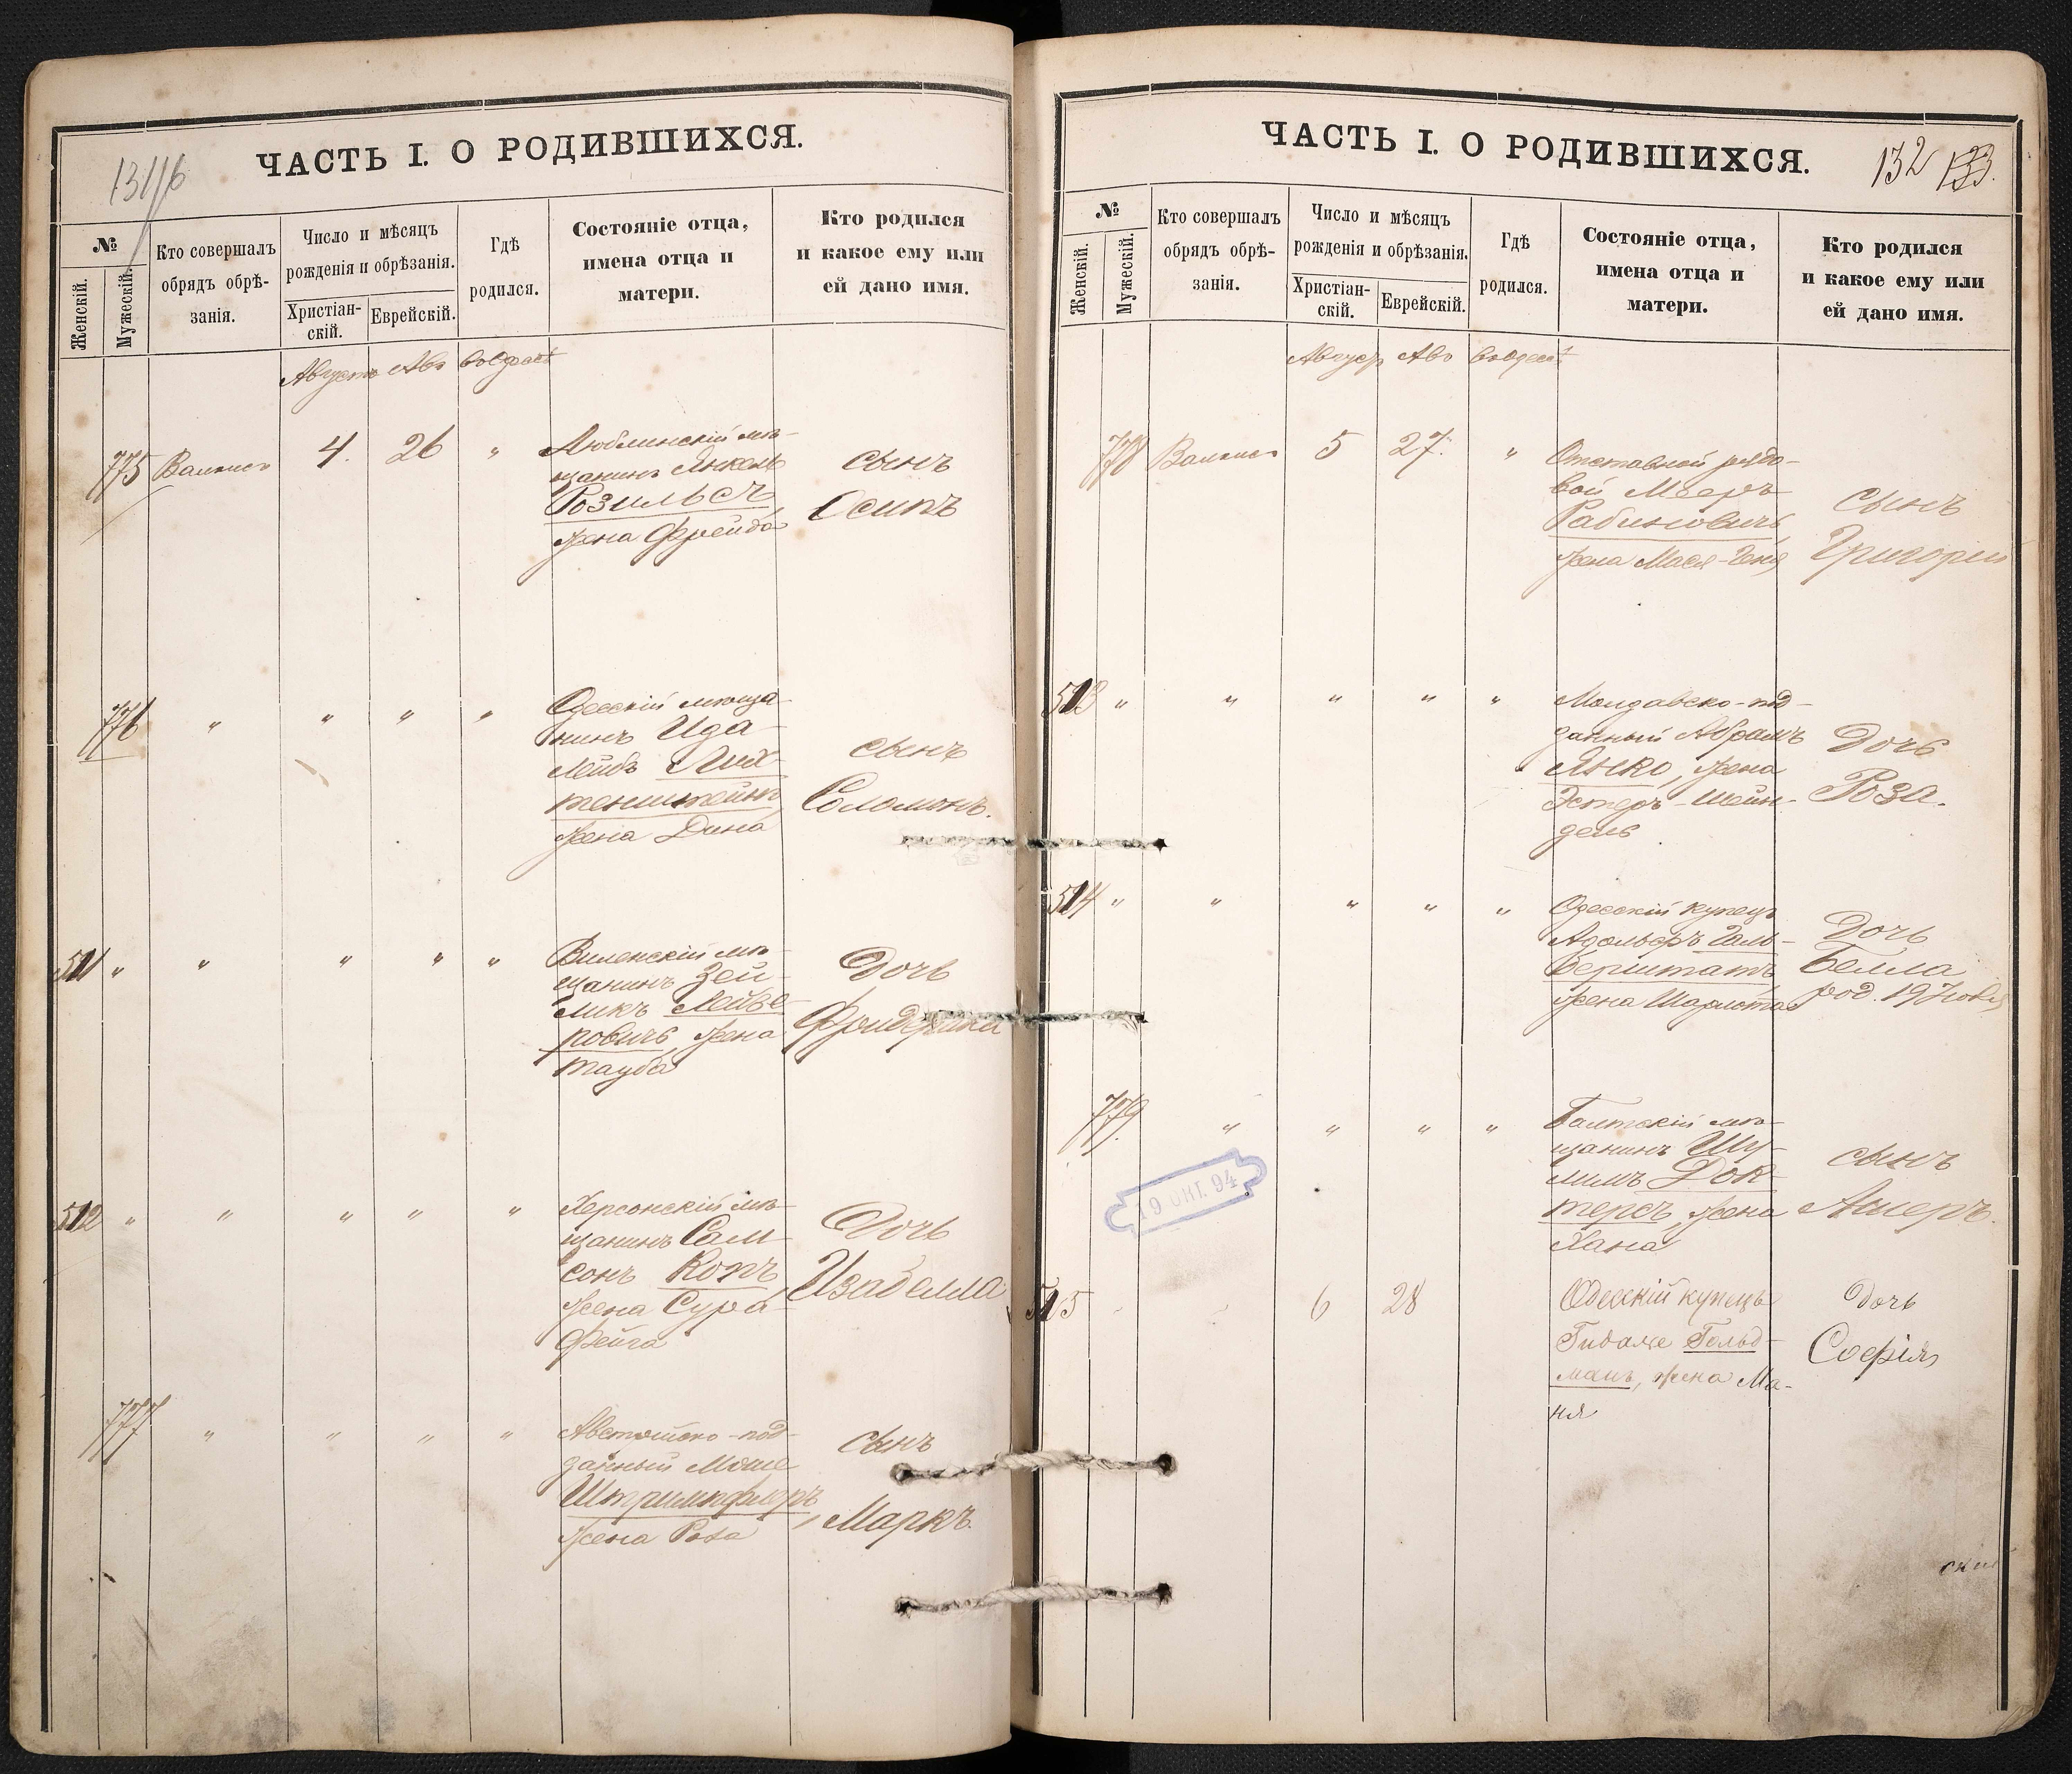 131/16
ЧАСТЬ I. О РОДИВШИХСЯ.
№
Женскій.
Мужескій.
Кто совершалъ
обрядъ обрѣ-
занія.
Число и мѣсяцъ
рожденія и обрѣзанія.
Христіан-
скій.
Еврейскій.
Гдѣ
родился.
Состояніе отца,
имена отца и
матери.
Кто родился
и какое ему или
ей дано имя.
Августъ Авъ
775 4. 26 "
Люблинскій мѣ-
щанинъ Янкель
Розильсъ,
жена Фрейда
сынъ
Осипъ
776 " " " "
Одесскій мѣща-
нинъ Ида
Лейбъ Лих-
тенштейнъ,
жена Дина
сынъ
Соломонъ.
511 " " " " "
Виленскій мѣ-
щанинъ Зей-
ликъ Лейзе-
ровичъ, жена
Тауба
Дочь
512 " " " " "
Херсонскій мѣ-
щанинъ Сам-
сонъ Копъ,
жена Сура
Фейга
Дочь
Изабелла
777 " " " "
Австрійско-под-
данный Моше
Штримпфлеръ,
жена Роза
сынъ
Маркъ.
ЧАСТЬ I. О РОДИВШИХСЯ.
132 133.
№
Женскій.
Мужескій.
Кто совершалъ
обрядъ обрѣ-
занія.
Число и мѣсяцъ
рожденія и обрѣзанія.
Христіан-
скій.
Еврейскій.
Гдѣ
родился.
Состояніе отца,
имена отца и
матери.
Кто родился
и какое ему или
ей дано имя.
Августъ Авъ
778 5 27. "
Отставной рядо-
вой Мееръ
Рабиновичъ,
жена Мася-Геня
сынъ
Григорій
513 " " " " "
Молдавско-под-
данный Абрамъ
Янко, жена
Эстеръ-Шейн-
дель
Дочь
Роза.
514 " " " " "
Одесскій купецъ
Адольфъ Галь-
берштатъ,
жена Шарлотта
Дочь
Белла
род. 19 Іюля
779. " " " "
Балтскій мѣ-
щанинъ Шу-
лимъ Док-
терсъ, жена
Хана
сынъ
Ашеръ.
19 ОКТ. 94
515 6 28
Одесскій купецъ
Гидалье Гольд-
манъ, жена Ма-
ня
дочь
Софія